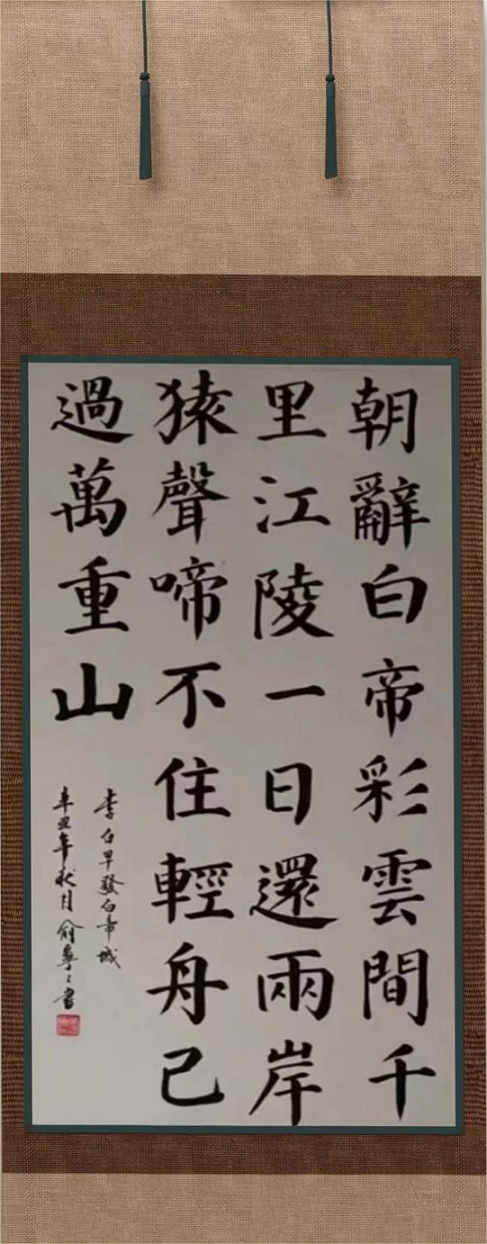 朝辭白帝彩雲間千
里江陵一日還兩岸
猿聲啼不住輕舟已
過萬重山
李白早發白帝城
辛丑年秋月俞寧書